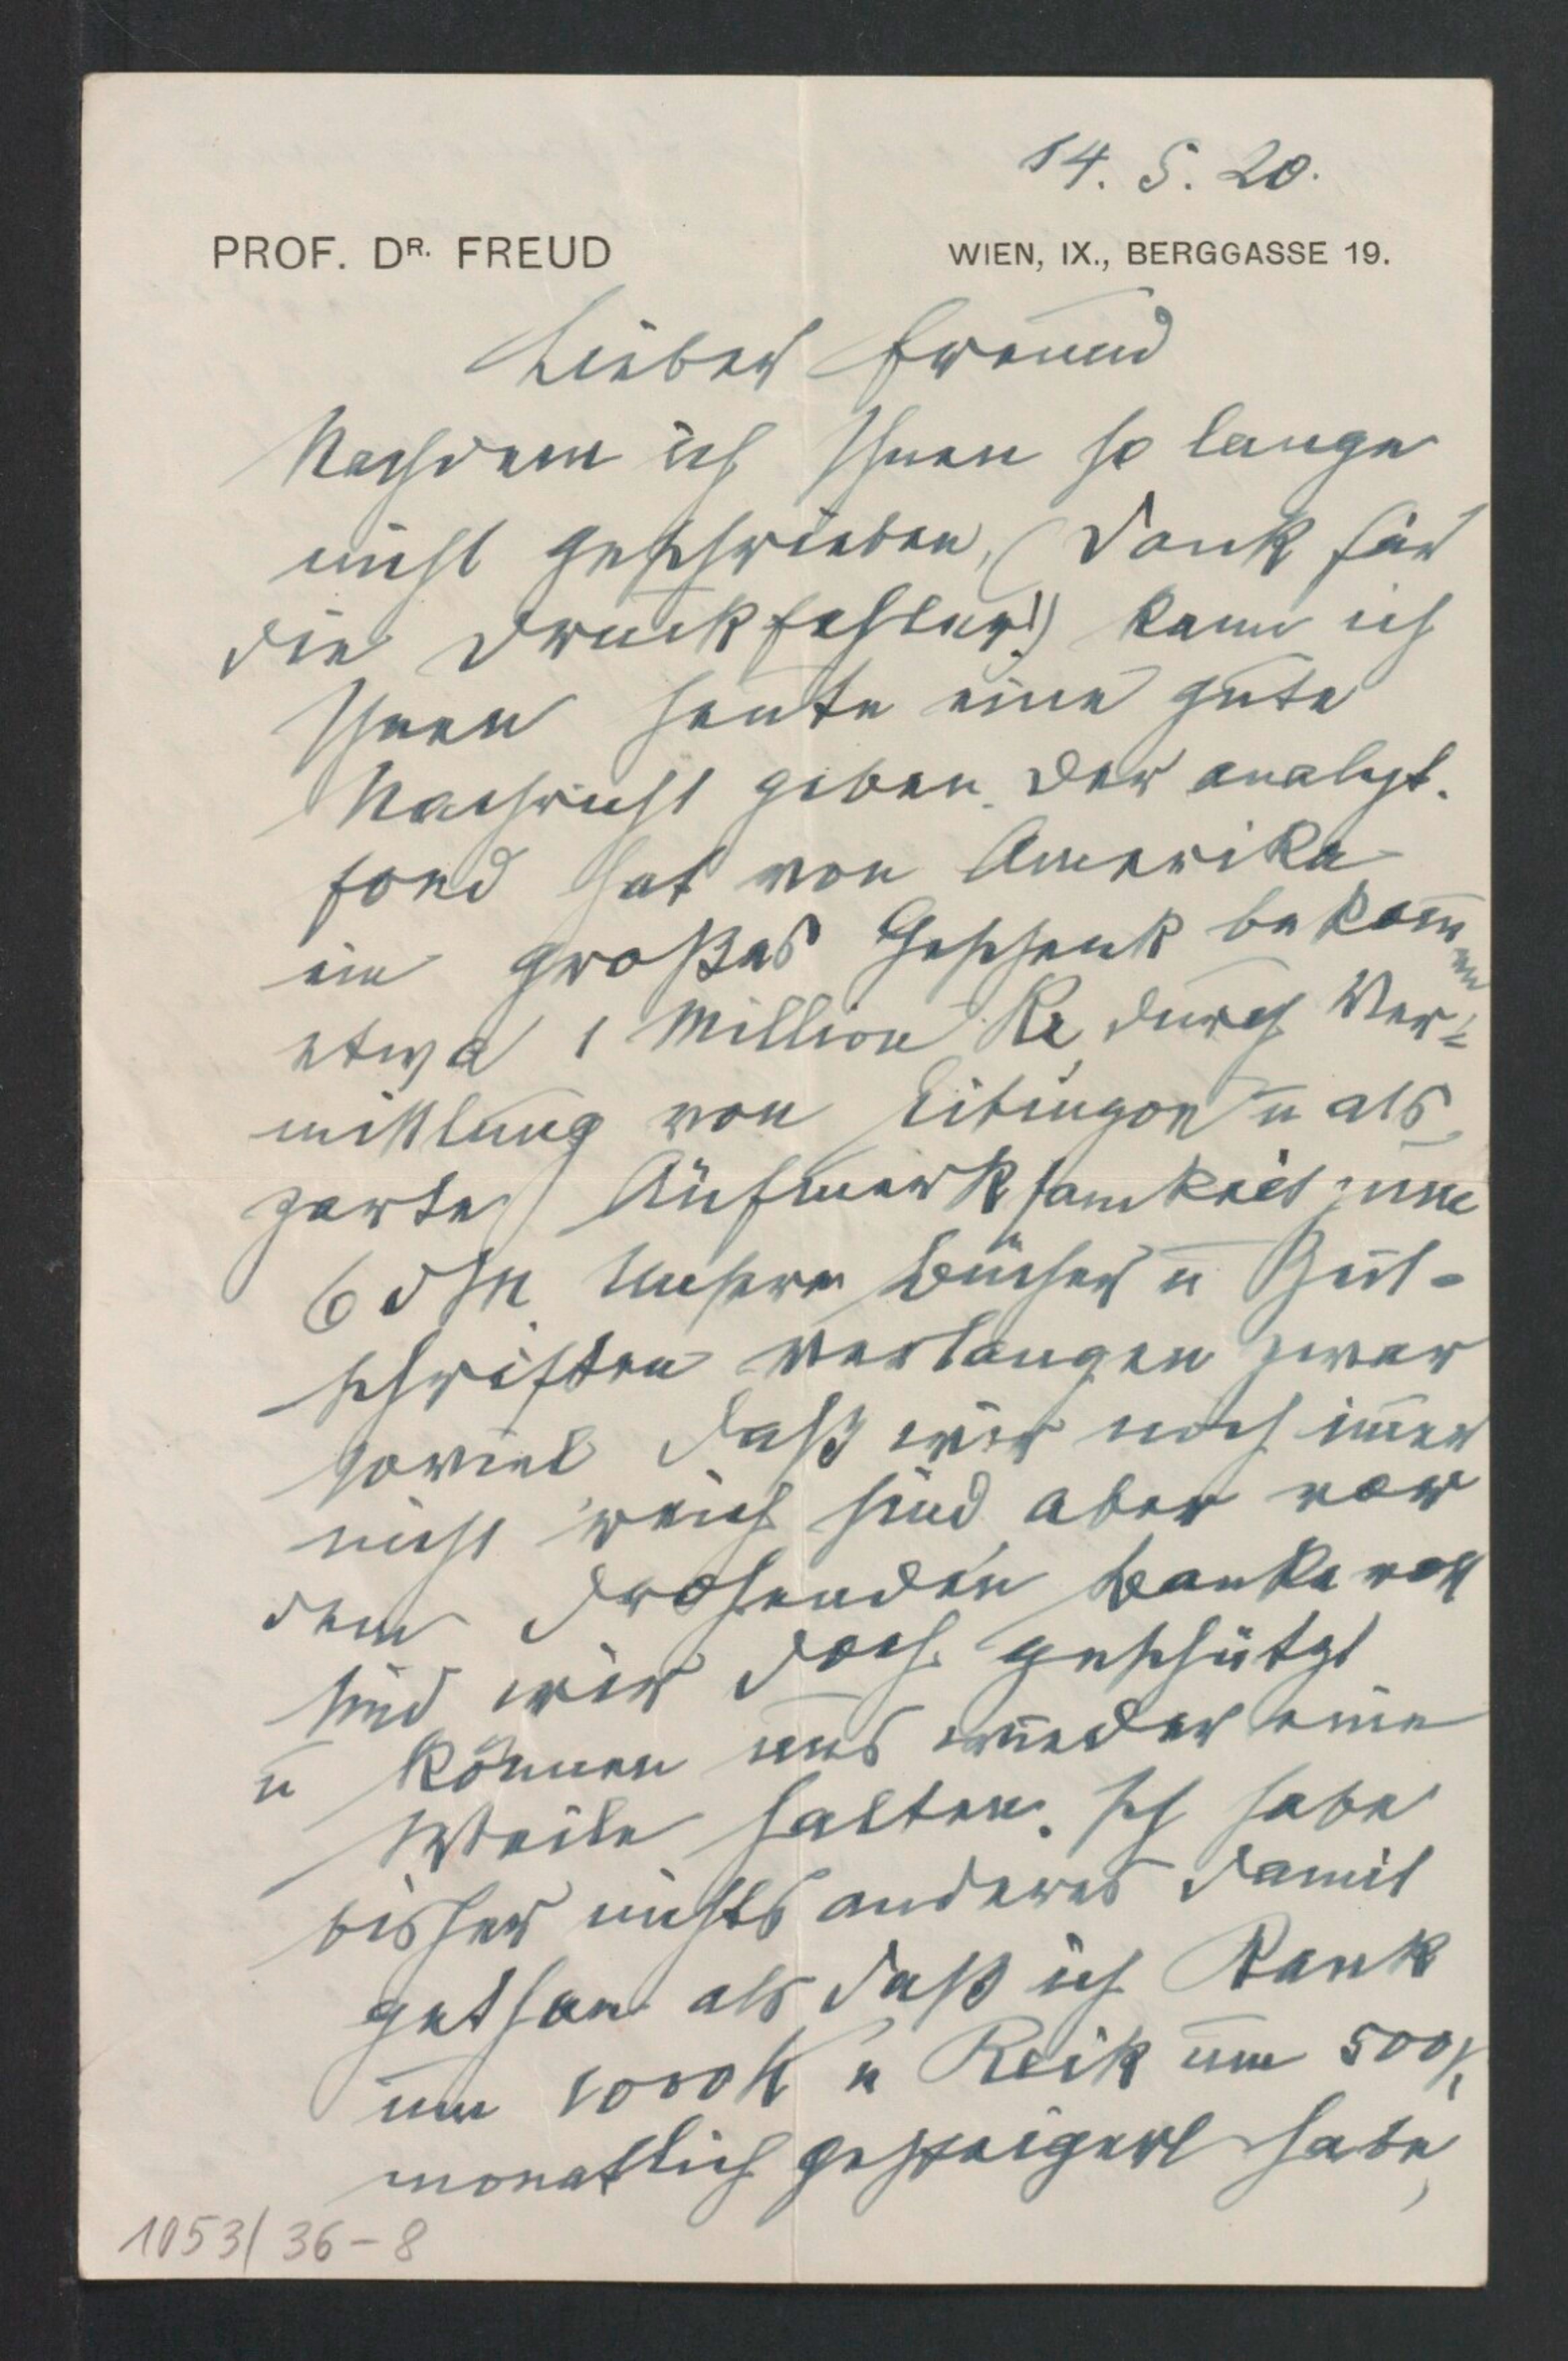 14. 5. 20.
PROF. DR. FREUD
WIEN, IX., BERGGASSE 19.
Lieber Freund
Nachdem ich Ihnen so lange
nicht geschrieben, (Dank für
die Druckfehler!) kann ich
Ihnen heute eine gute
Nachricht geben. Der analyt.
Fond hat von Amerika
ein großes Geschenk bekom̄en
etwa 1 Million K, durch Ver-
mittlung von Eitingon u als
zarte Aufmerksamkeit zum
6 d M. Unsere Bücher u Zeit-
schriften verlangen zwar
soviel daß wir noch im̄er
nicht reich sind aber vor
dem drohenden Bankerott
sind wir doch geschützt
u können uns wieder eine
Weile halten. Ich habe
bisher nichts anderes damit
gethan als daß ich Rank
um 1000 K u Reik um 500 K
monatlich gesteigert habe,
1053/36-8